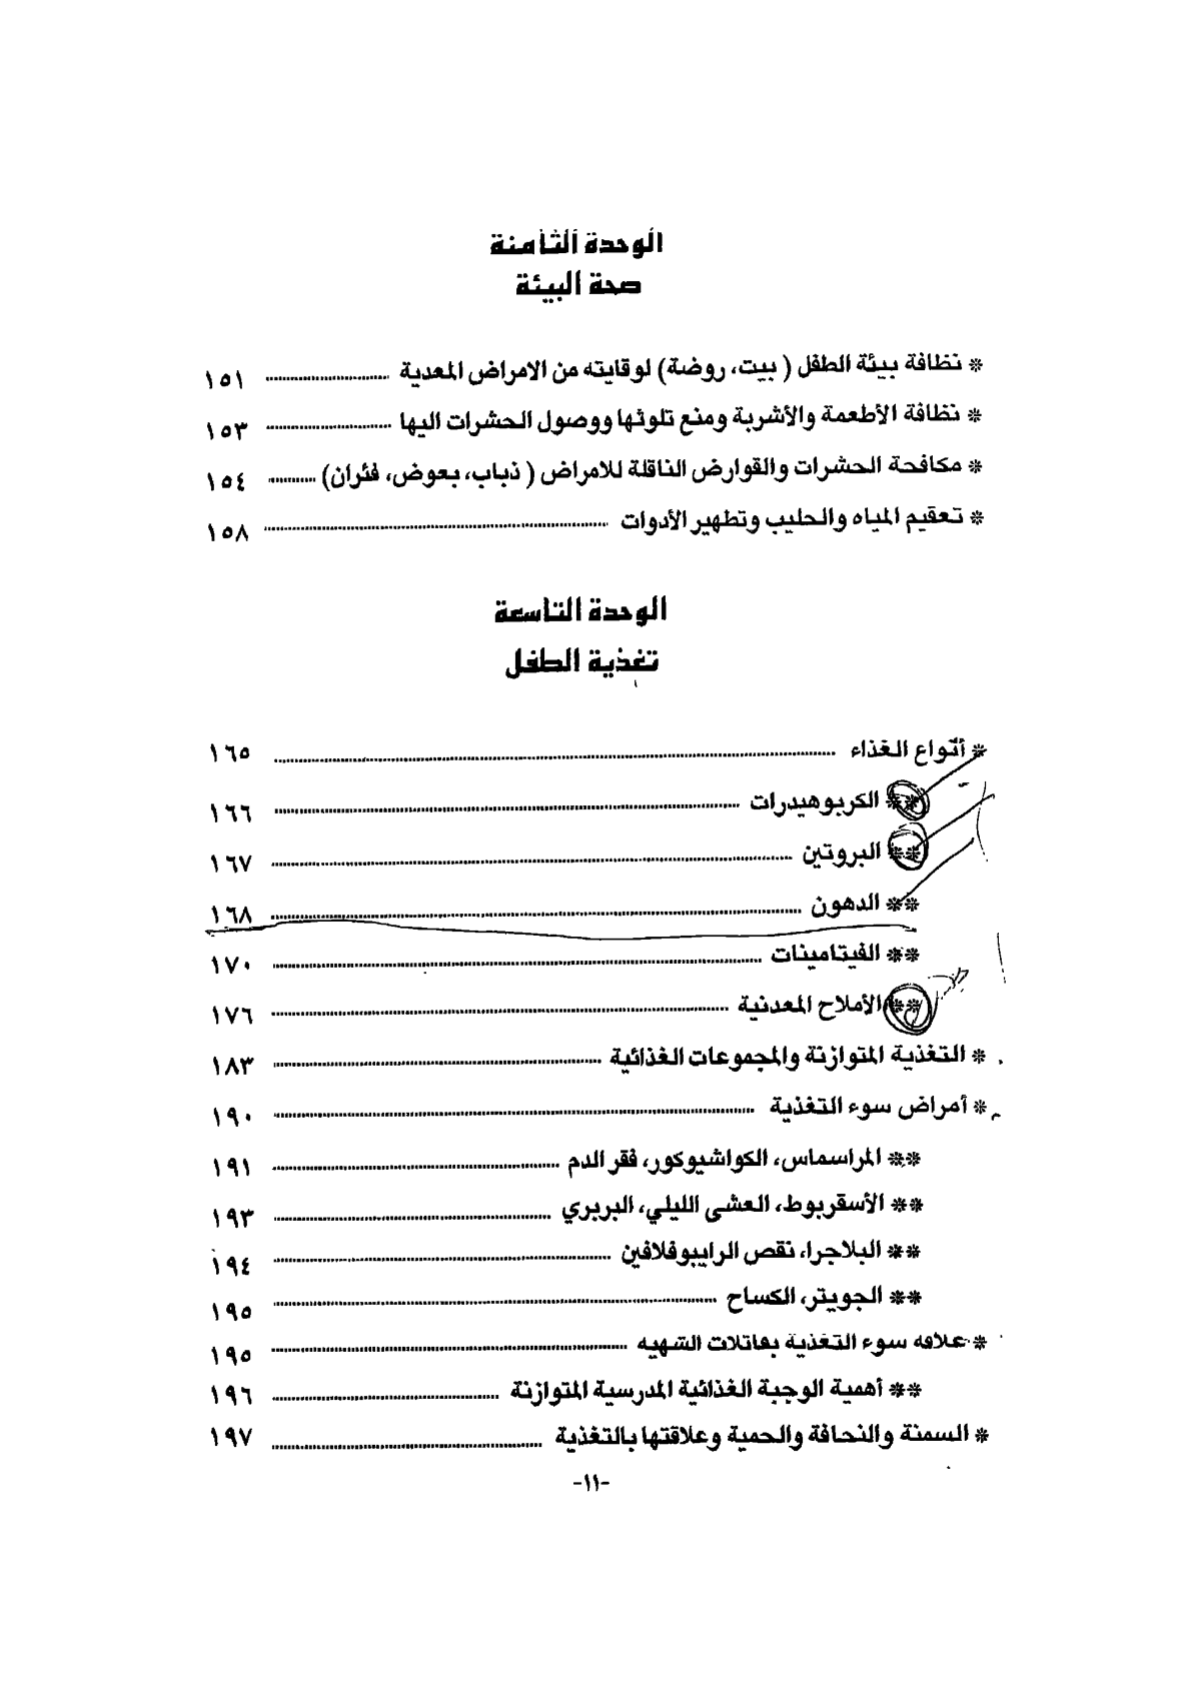 الوحدة الثامنة
صحة البيئة
* نظافة بيئة الطفل ( بيت، روضة) لوقايته من الامراض المعدية ........ ١٥١
* نظافة الأطعمة والأشربة ومنع تلوثها ووصول الحشرات اليها ........ ١٥٣
* مكافحة الحشرات والقوارض الناقلة للامراض ( ذباب، بعوض، فئران) ........ ١٥٤
* تعقيم المياه والحليب وتطهير الأدوات ........ ١٥٨
الوحدة التاسعة
تغذية الطفل
* أنواع الغذاء ........ ١٦٥
** الكربوهيدرات ........ ١٦٦
** البروتين ........ ١٦٧
** الدهون ........ ١٦٨
** الفيتامينات ........ ١٧٠
** الأملاح المعدنية ........ ١٧٦
* التغذية المتوازنة والمجموعات الغذائية ........ ١٨٣
* أمراض سوء التغذية ........ ١٩٠
** المراسماس، الكواشيوكور، فقر الدم ........ ١٩١
** الأسقربوط، العشى الليلي، البربري ........ ١٩٣
** البلاجرا، نقص الرايبوفلافين ........ ١٩٤
** الجويتر، الكساح ........ ١٩٥
* علاقه سوء التغذية بقاتلات الشهيه ........ ١٩٥
** أهمية الوجبة الغذائية المدرسية المتوازنة ........ ١٩٦
* السمنة والنحافة والحمية وعلاقتها بالتغذية ........ ١٩٧
-١١-